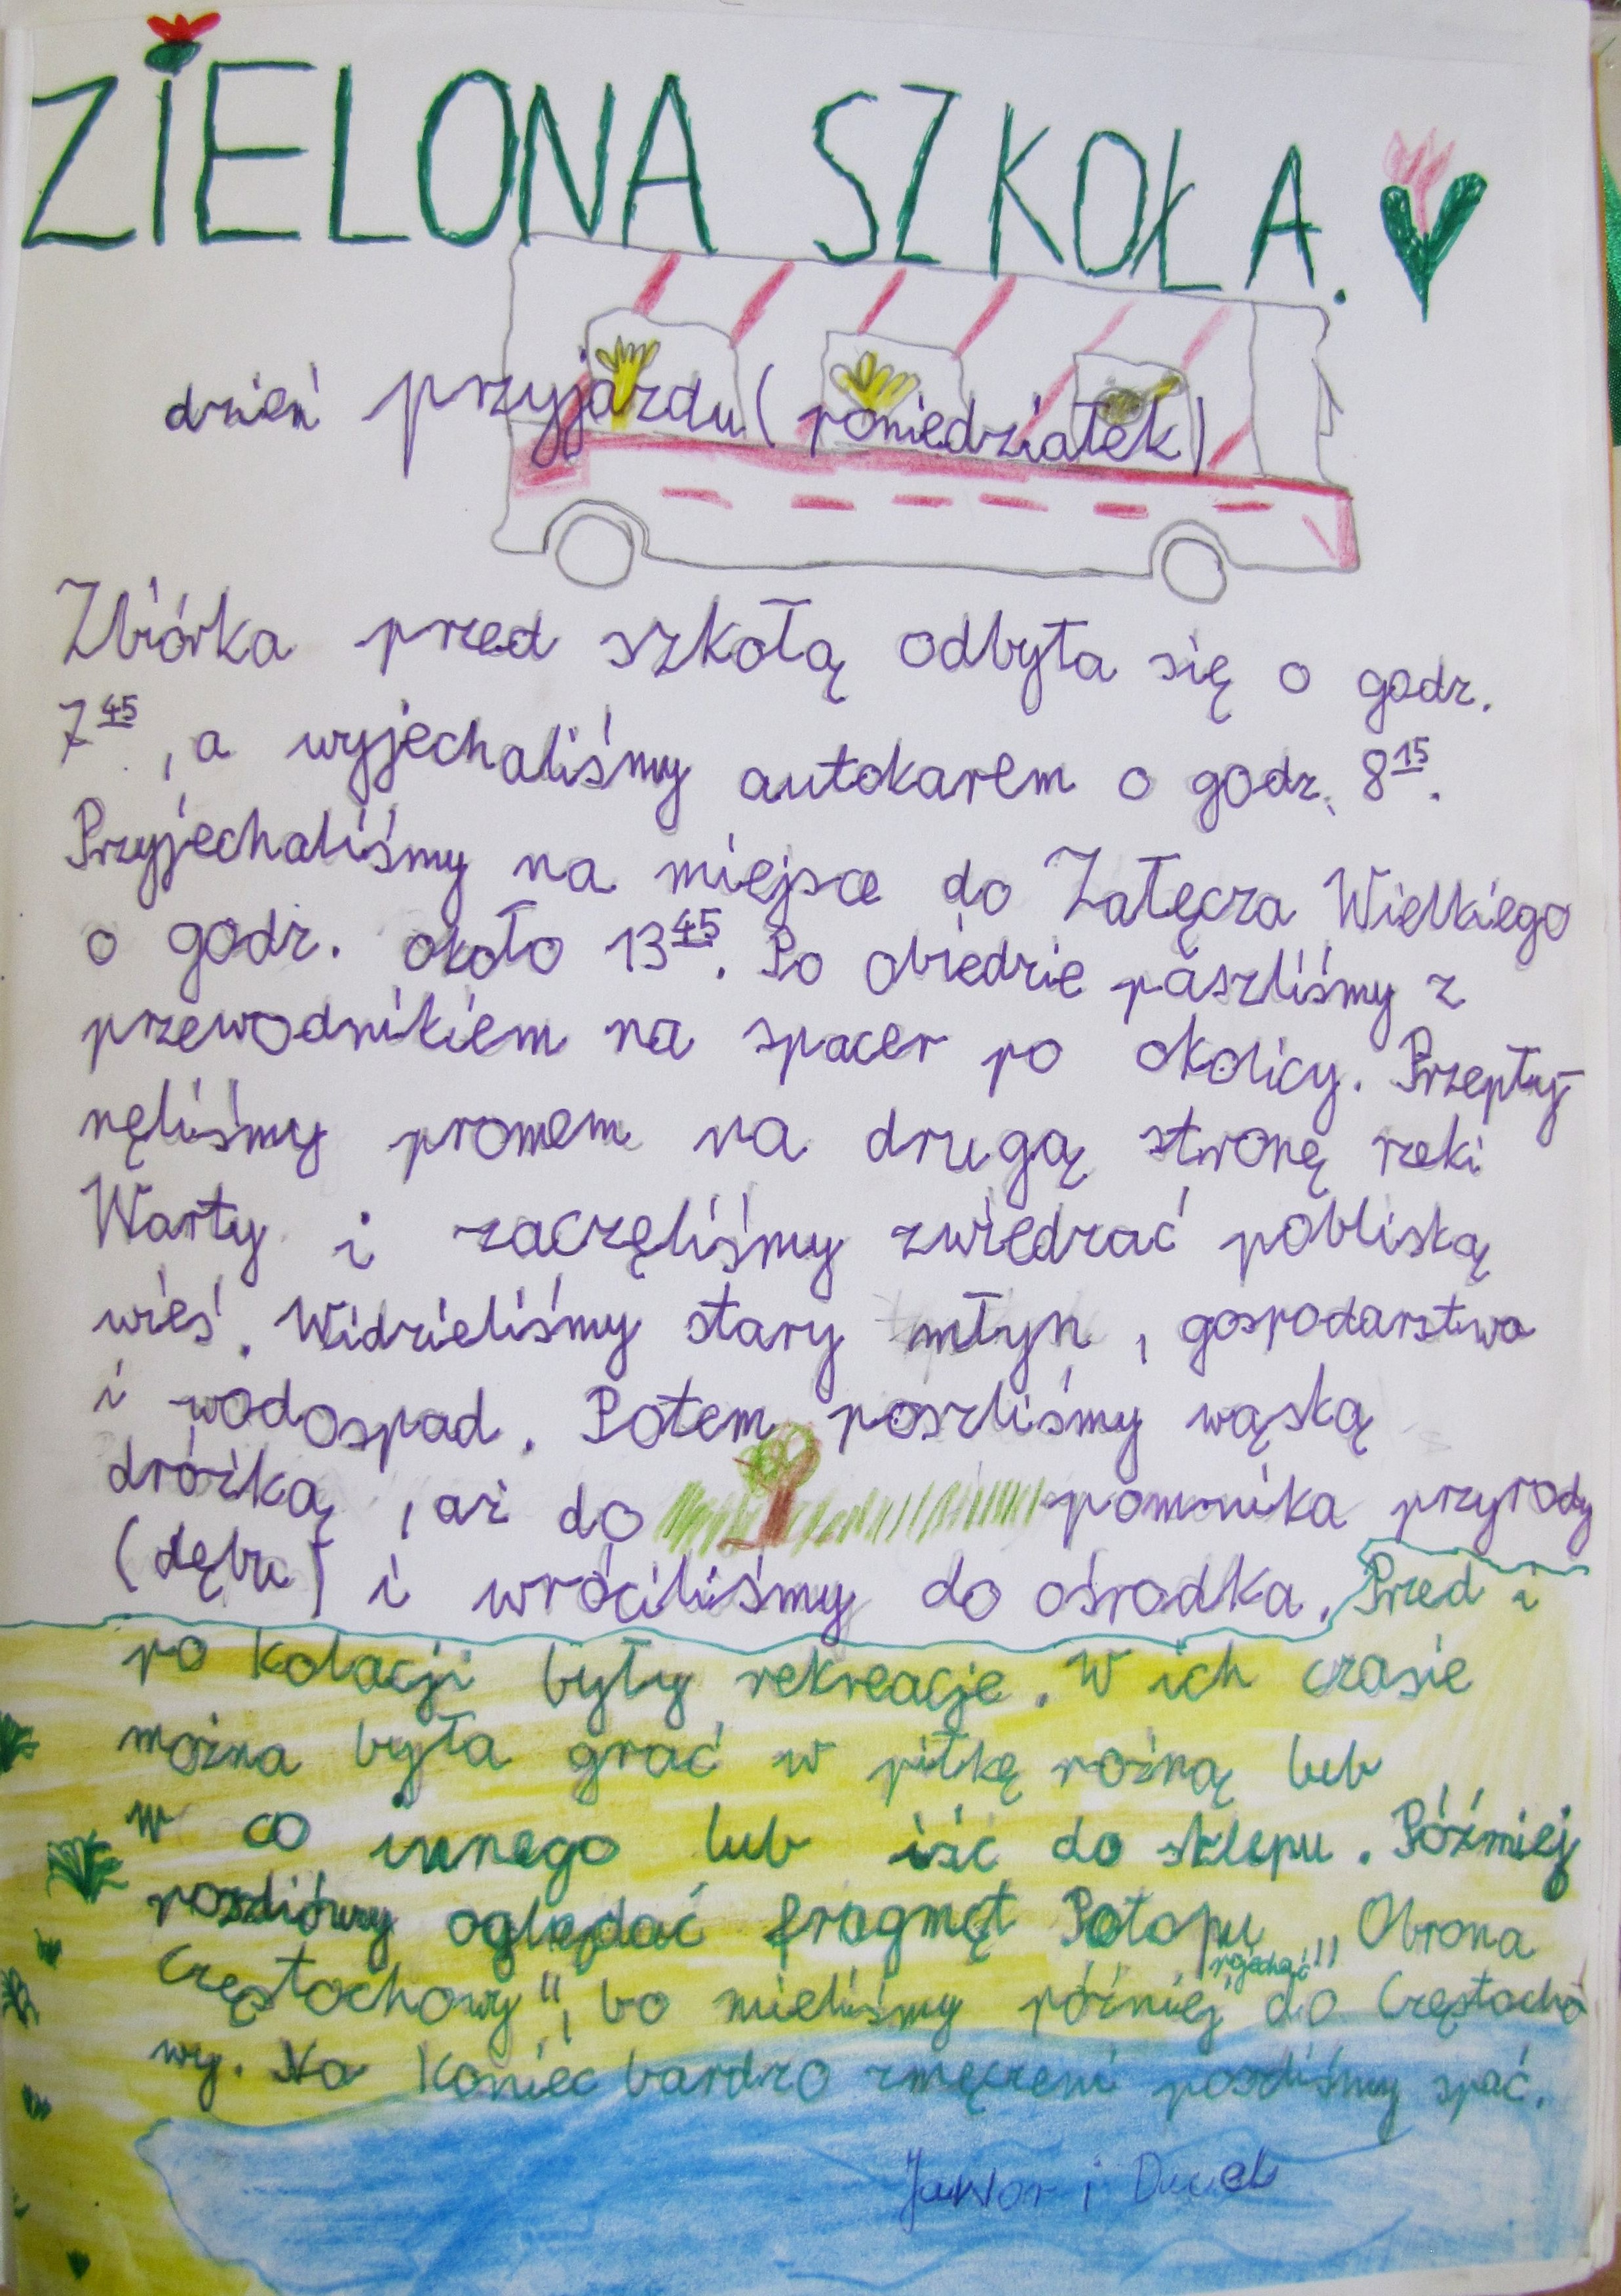 ZIELONA SZKOŁA.
dzień przyjazdu (poniedziałek)
Zbiórka przed szkołą odbyła się o godz.
7 45, a wyjechaliśmy autokarem o godz. 8 15.
Przyjechaliśmy na miejsce do Załęcza Wielkiego
o godz. około 13 45. Po obiedzie paszliśmy z
przewodnikiem na spacer po okolicy. Przepły-
nęliśmy promem na drugą stronę rzeki
Warty i zaczęliśmy zwiedzać pobliską
wieś. Widzieliśmy stary młyn, gospodarstwa
i wodospad. Potem poszliśmy wąską
dróżką, aż do pomnika przyrody
(dębu) i wróciliśmy do ośrodka. Przed i
po kolacji były rekreacje. W ich czasie
można była grać w piłkę nożną lub
w co innego lub iść do sklepu. Później
poszliśmy oglądać fragmęt Potopu „Obrona
Częstochowy", bo mieliśmy później "pojechać" do Częstocho
wy. Na koniec bardzo zmęczeni poszliśmy spać.
i